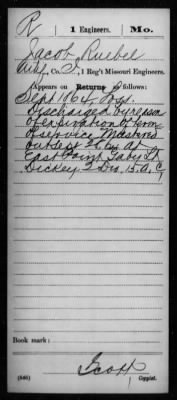 R | 1 Engineers. | Mo.
Jacob Ruebel
Co. I, 1 Reg't Missouri Engineers.
Appears on Returns as follows:
Sept 1864
Discharged by reason
of expiration of term
of service Mustered
out Sept 26, 64 at
East Point, Ga by Lt
Dickey 2 Div. 15. A. C.
Book mark:
Scott
(546) Copyist.